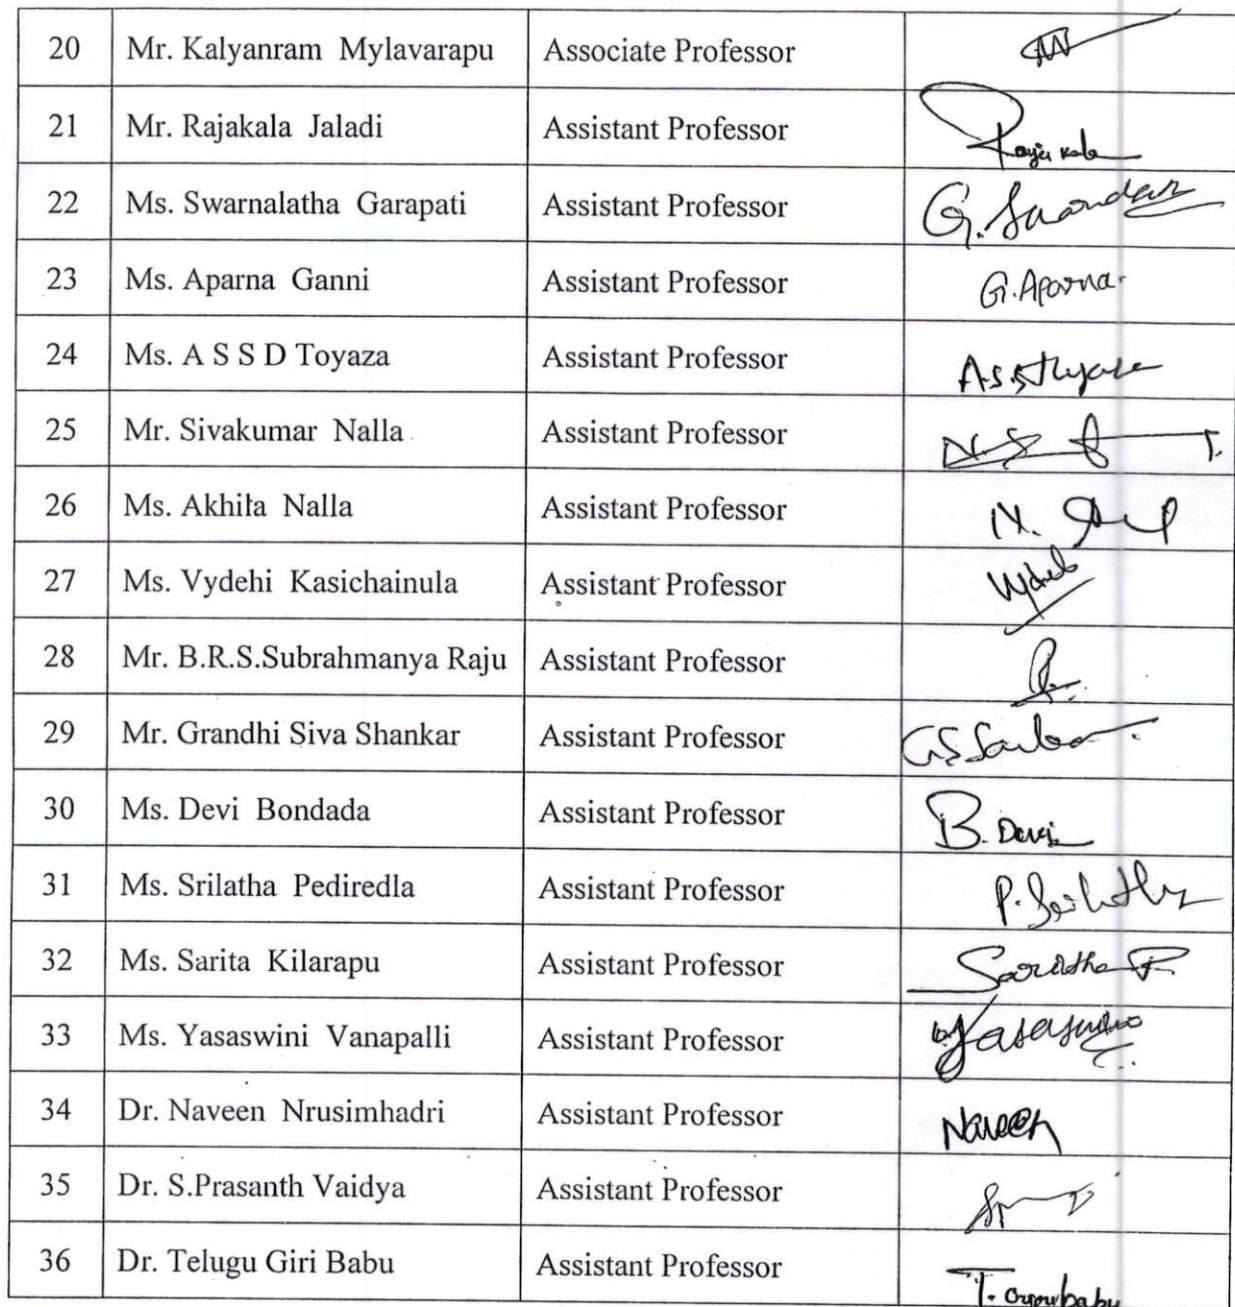 20 Mr. Kalyanram Mylavarapu Associate Professor
21 Mr. Rajakala Jaladi Assistant Professor
22 Ms. Swarnalatha Garapati Assistant Professor
23 Ms. Aparna Ganni Assistant Professor G. Aparna.
24 Ms. A S S D Toyaza Assistant Professor
25 Mr. Sivakumar Nalla Assistant Professor
26 Ms. Akhila Nalla Assistant Professor
27 Ms. Vydehi Kasichainula Assistant Professor
28 Mr. B.R.S.Subrahmanya Raju Assistant Professor
29 Mr. Grandhi Siva Shankar Assistant Professor
30 Ms. Devi Bondada Assistant Professor B. Devi
31 Ms. Srilatha Pediredla Assistant Professor
32 Ms. Sarita Kilarapu Assistant Professor
33 Ms. Yasaswini Vanapalli Assistant Professor
34 Dr. Naveen Nrusimhadri Assistant Professor Naveen
35 Dr. S.Prasanth Vaidya Assistant Professor
36 Dr. Telugu Giri Babu Assistant Professor